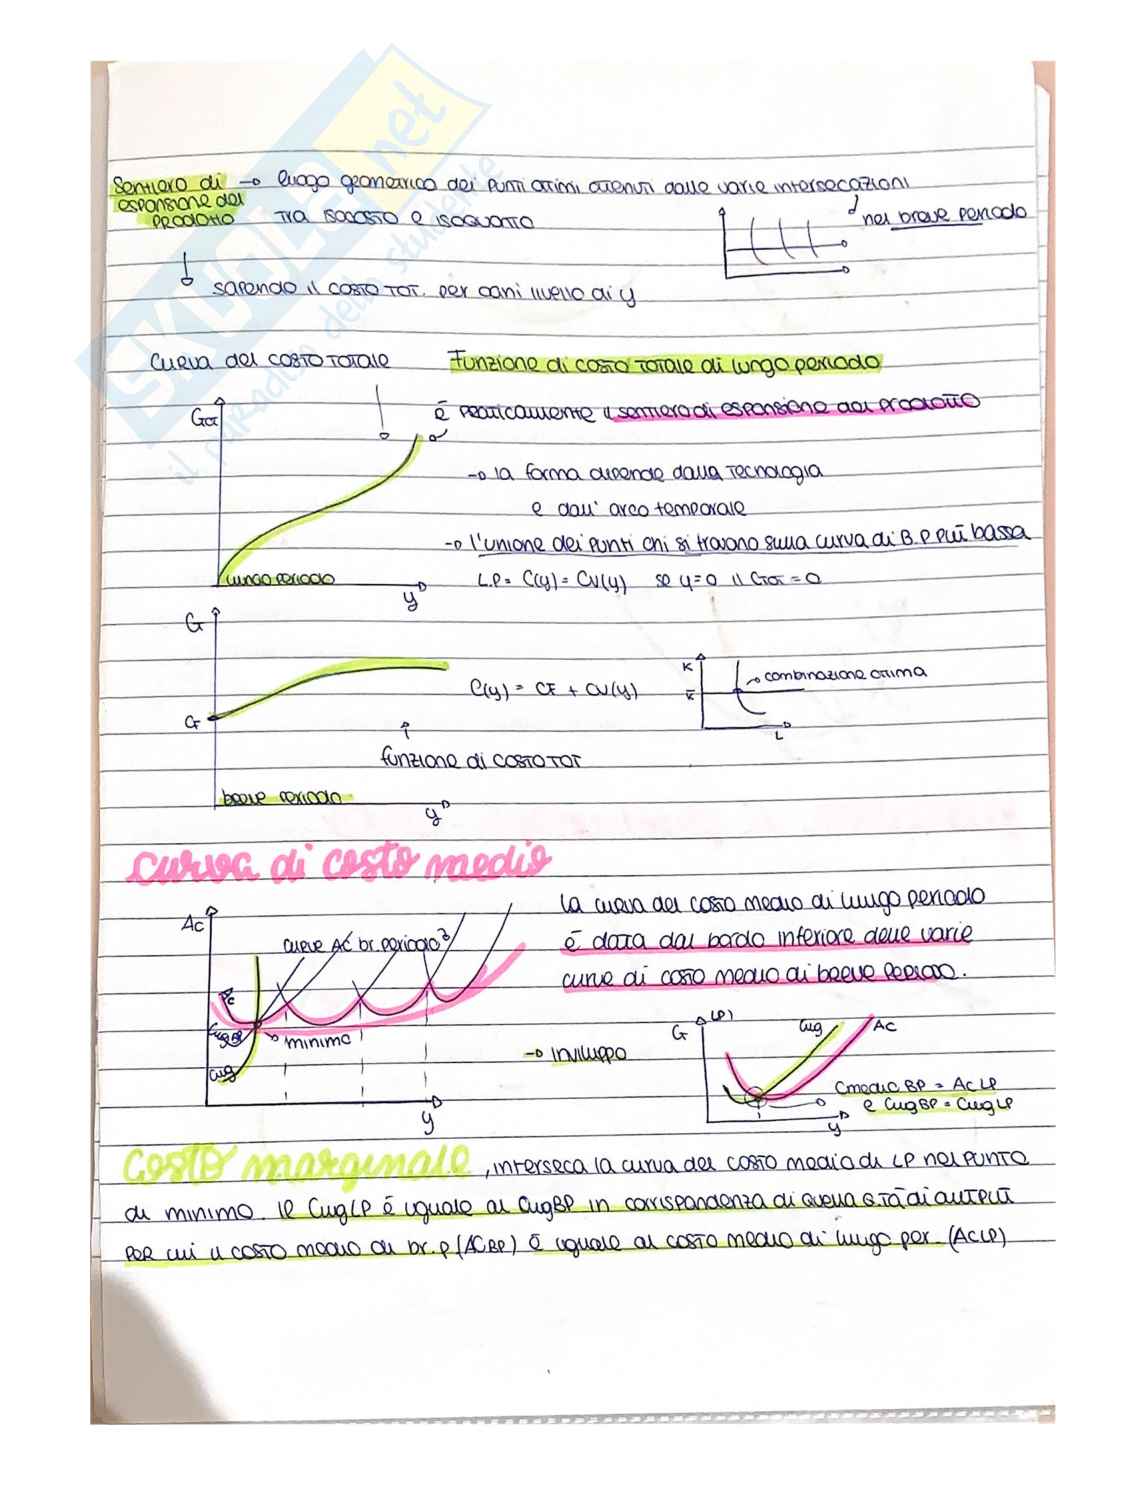 Sentiero di → luogo geometrico dei punti ottimi ottenuti dalle varie intersecazioni
espansione del
prodotto tra isocosto e isoquanto
nel breve periodo
sapendo il costo tot. per ogni livello di y
Curva del costo totale Funzione di costo totale di lungo periodo
è praticamente il sentiero di espansione del prodotto
→ la forma dipende dalla tecnologia
e dall' arco temporale
→ l'unione dei punti chi si trovano sulla curva di B.P più bassa
lungo periodo
L.P = C(y) = CV(y) se y=0 il Ctot = 0
y
K
combinazione ottima
C(y) = CF + CV(y)
K
CF
L
funzione di costo tot
breve periodo
y
Curva di costo medio
AC
La curva del costo medio di lungo periodo
curve AC br. periodo
è data dal bordo inferiore delle varie
curve di costo medio di breve periodo.
AC
(LP)
Cug
AC
CugBP
minimo
→ inviluppo
Cug
Cmedio BP = AC LP
e CugBP = CugLP
y
y
Costo marginale, interseca la curva del costo medio di LP nel punto
di minimo. Il CugLP è uguale al CugBP in corrispondenza di quella q.tà di output
per cui il costo medio di br.p (ACBP) è uguale al costo medio di lungo per. (ACLP)
SKUOLA.net
il paradiso dello studente